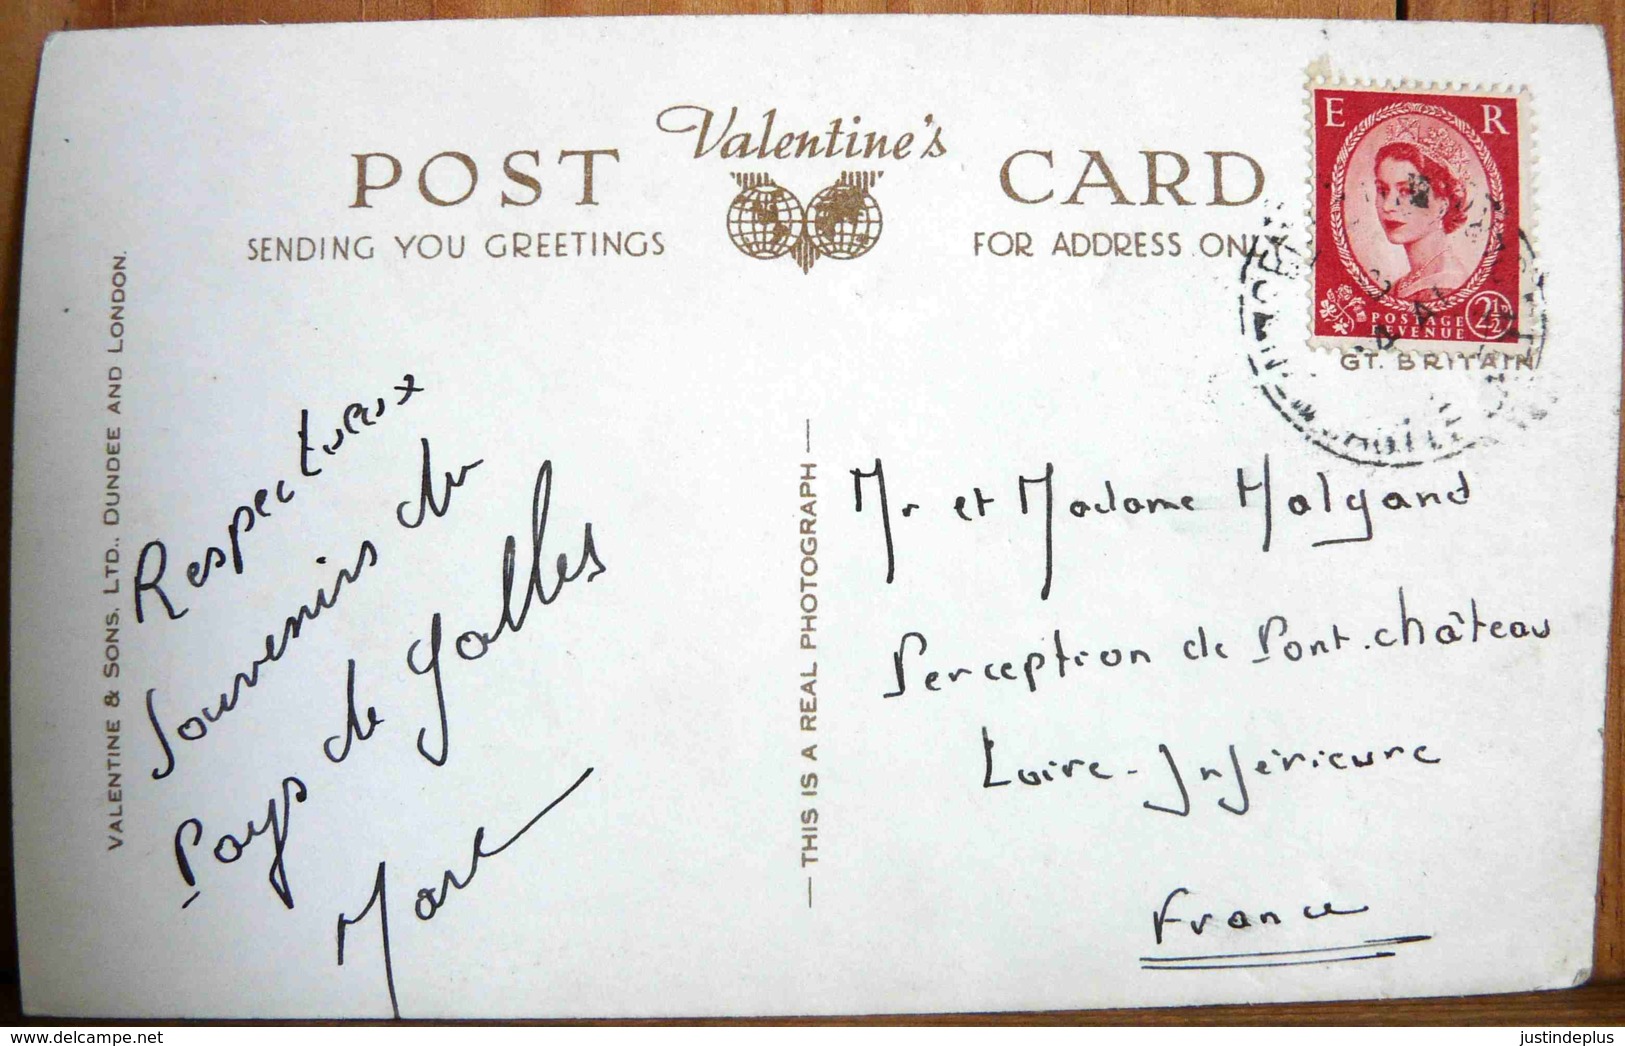 POST Valentine's CARD
SENDING YOU GREETINGS
FOR ADDRESS ONLY
E R
POSTAGE
REVENUE 2½
GT. BRITAIN
VALENTINE & SONS. LTD., DUNDEE AND LONDON.
Respectueux
Souvenirs du
Pays de Galles
Marc
— THIS IS A REAL PHOTOGRAPH —
Mr et Madame Malgand
Perception de Pont-château
Loire-Inférieure
France
delcampe.net
justindeplus